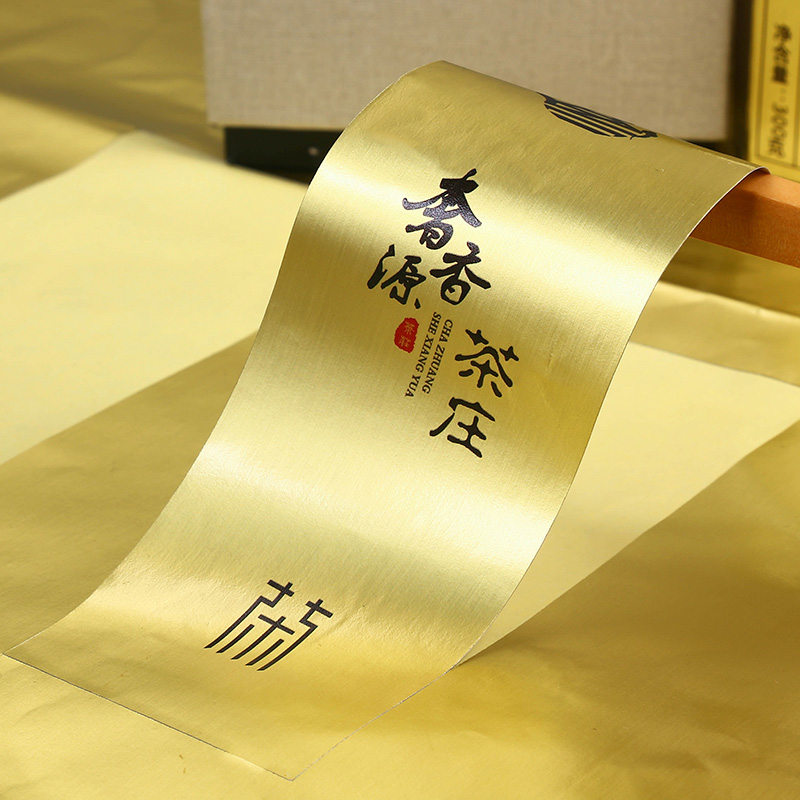 净含量:300克
奢香源
茶庄
CHA ZHUANG
SHE XIANG YUA
茶莊